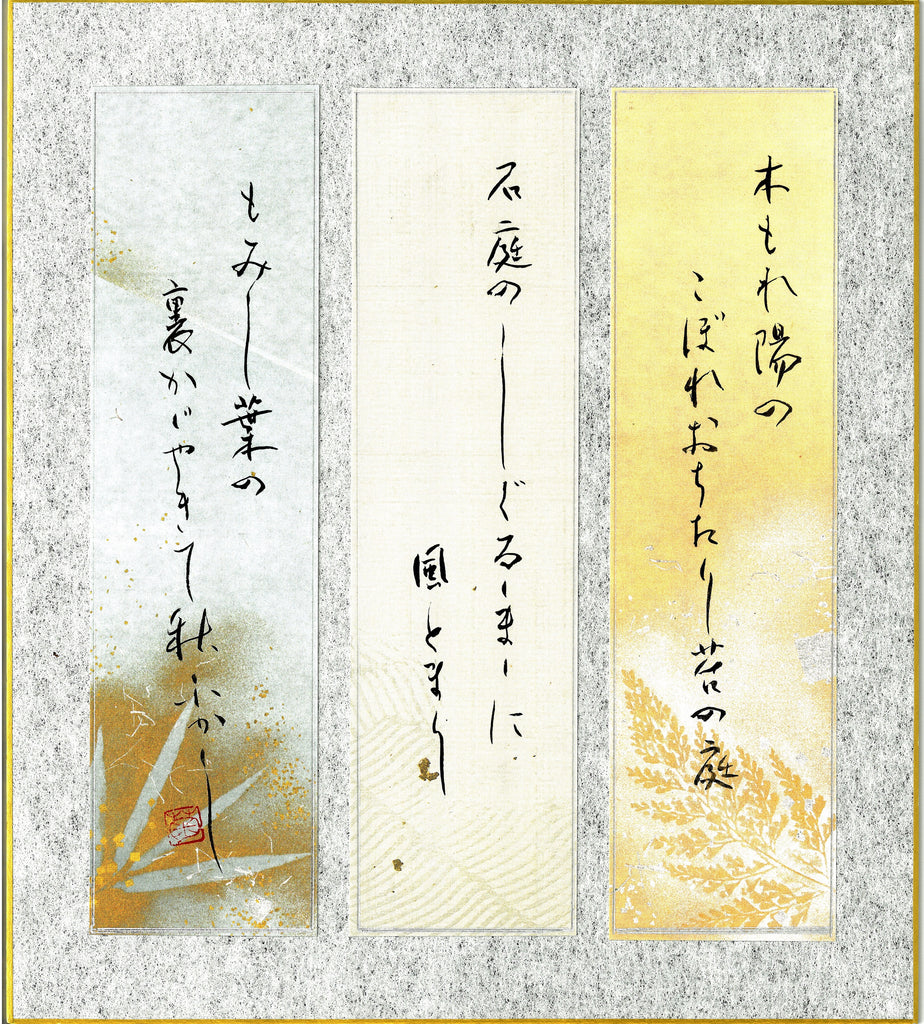 木もれ陽の
こぼれおちたり苔の庭
石庭のしぐるゝまゝに
風とまり
もみし葉の
裏かゞやきて秋ふかし